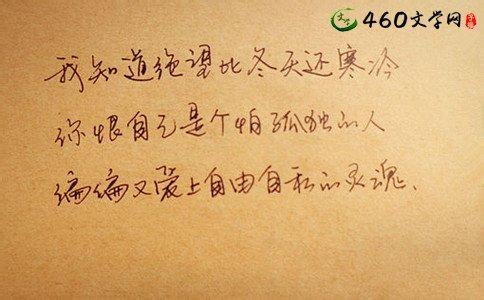 460文学网
我知道绝望比冬天还寒冷
你恨自己是个怕孤独的人
偏偏又爱上自由自私的灵魂.